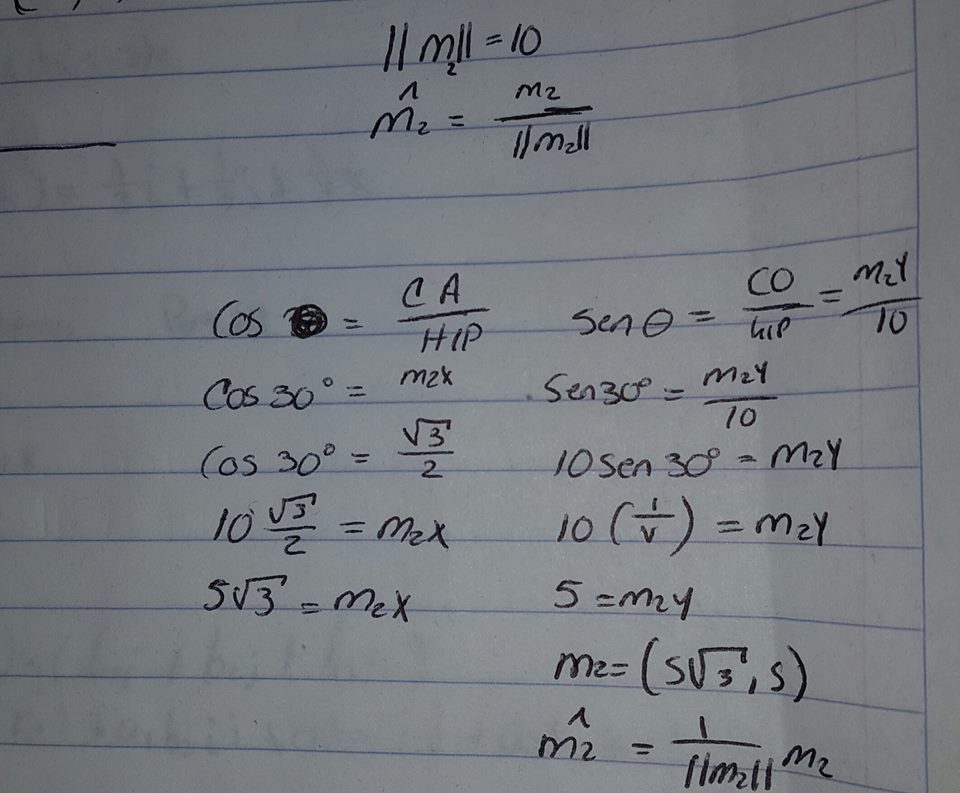 ||m₂|| = 10
m̂₂ = m₂ / ||m₂||
Cos = CA / HIP
Cos 30° = m₂x
Cos 30° = √3 / 2
10 √3 / 2 = m₂x
5√3 = m₂x
Sen θ = CO / hIP = m₂y / 10
Sen 30° = m₂y / 10
10 Sen 30° = m₂y
10 (1 / v) = m₂y
5 = m₂y
m₂ = (5√3, 5)
m̂₂ = 1 / ||m₂|| m₂